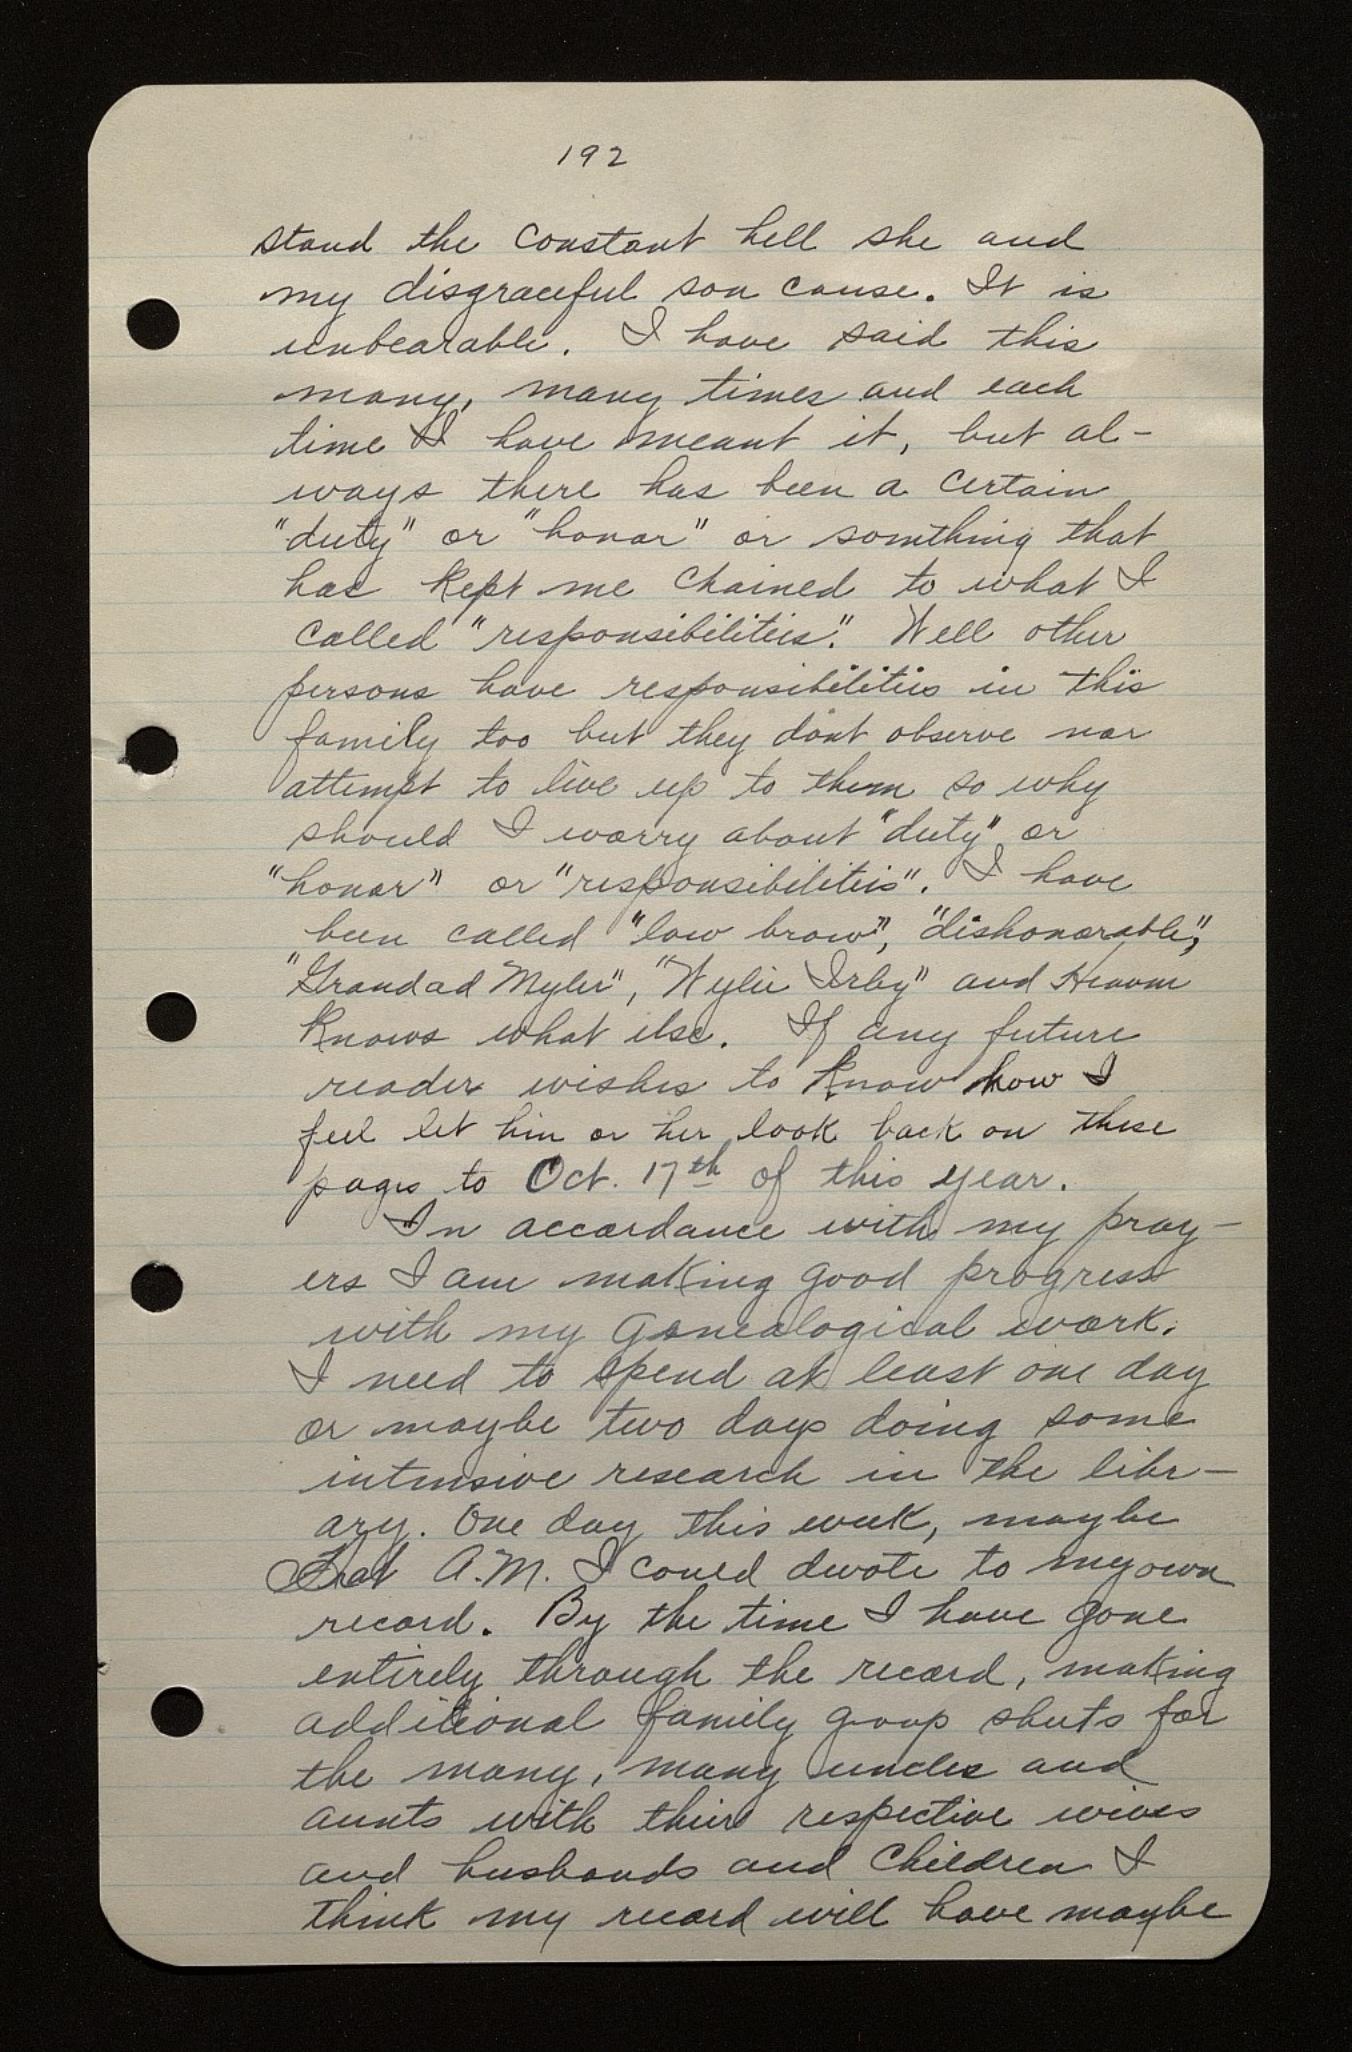 192
stand the constant hell she and
my disgraceful son cause. It is
unbearable. I have said this
many, many times and each
time I have meant it, but al-
ways there has been a certain
"duty" or "honor" or somthing that
has kept me chained to what I
called "responsibilities". Well other
persons have responsibilities in this
family too but they dont observe nor
attempt to live up to them so why
should I worry about "duty" or
"honor" or "responsibilities". I have
been called "low brow", "dishonorable",
"Grandad Myler", "Wylie Irby" and Heaven
knows what else. If any future
reader wishes to know how I
feel let him or her look back on these
pages to Oct. 17th of this year.
In accordance with my pray-
ers I am making good progress
with my Genealogical work.
I need to spend at least one day
or maybe two days doing some
intensive research in the libr-
ary. One day this week, maybe
A.M. I could devote to my own
record. By the time I have gone
entirely through the record, making
additional family group sheets for
the many, many uncles and
aunts with their respective wives
and husbands and children I
think my record will have maybe